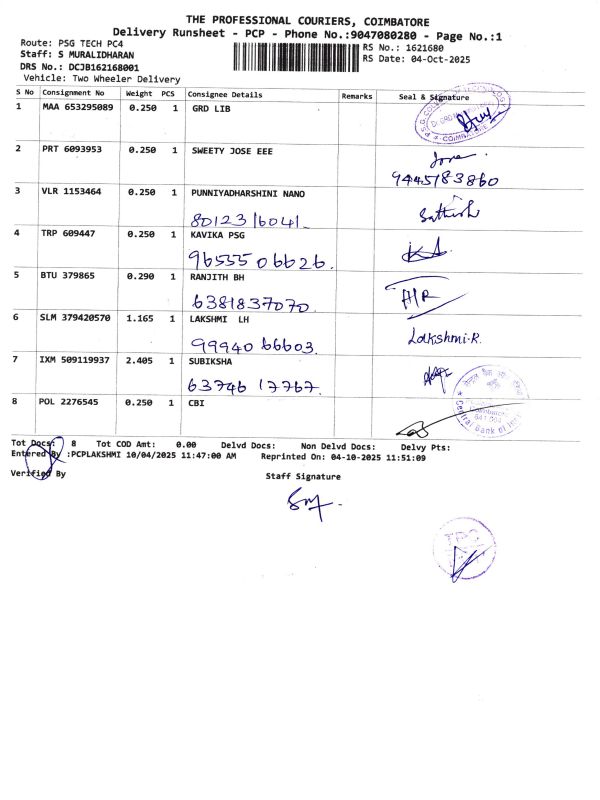 THE PROFESSIONAL COURIERS, COIMBATORE
Delivery Runsheet - PCP - Phone No.:9047080280 - Page No.:1
Route: PSG TECH PC4
Staff: S MURALIDHARAN
DRS No.: DCJB162168001
Vehicle: Two Wheeler Delivery
RS No.: 1621680
RS Date: 04-Oct-2025
S No Consignment No Weight PCS Consignee Details Remarks Seal & Signature
1 MAA 653295089 0.250 1 GRD LIB
2 PRT 6093953 0.250 1 SWEETY JOSE EEE
9445183860
3 VLR 1153464 0.250 1 PUNNIYADHARSHINI NANO
8012316041 Sathish
4 TRP 609447 0.250 1 KAVIKA PSG
9655506626.
5 BTU 379865 0.290 1 RANJITH BH
6381837070.
6 SLM 379420570 1.165 1 LAKSHMI LH
99940 66603. Lakshmi.R.
7 IXM 509119937 2.405 1 SUBIKSHA
63746 17767.
8 POL 2276545 0.250 1 CBI
Central Bank of India
Coimbatore
Tot Docs: 8 Tot COD Amt: 0.00 Delvd Docs: Non Delvd Docs: Delvy Pts:
Entered By :PCPLAKSHMI 10/04/2025 11:47:00 AM Reprinted On: 04-10-2025 11:51:09
Verified By Staff Signature